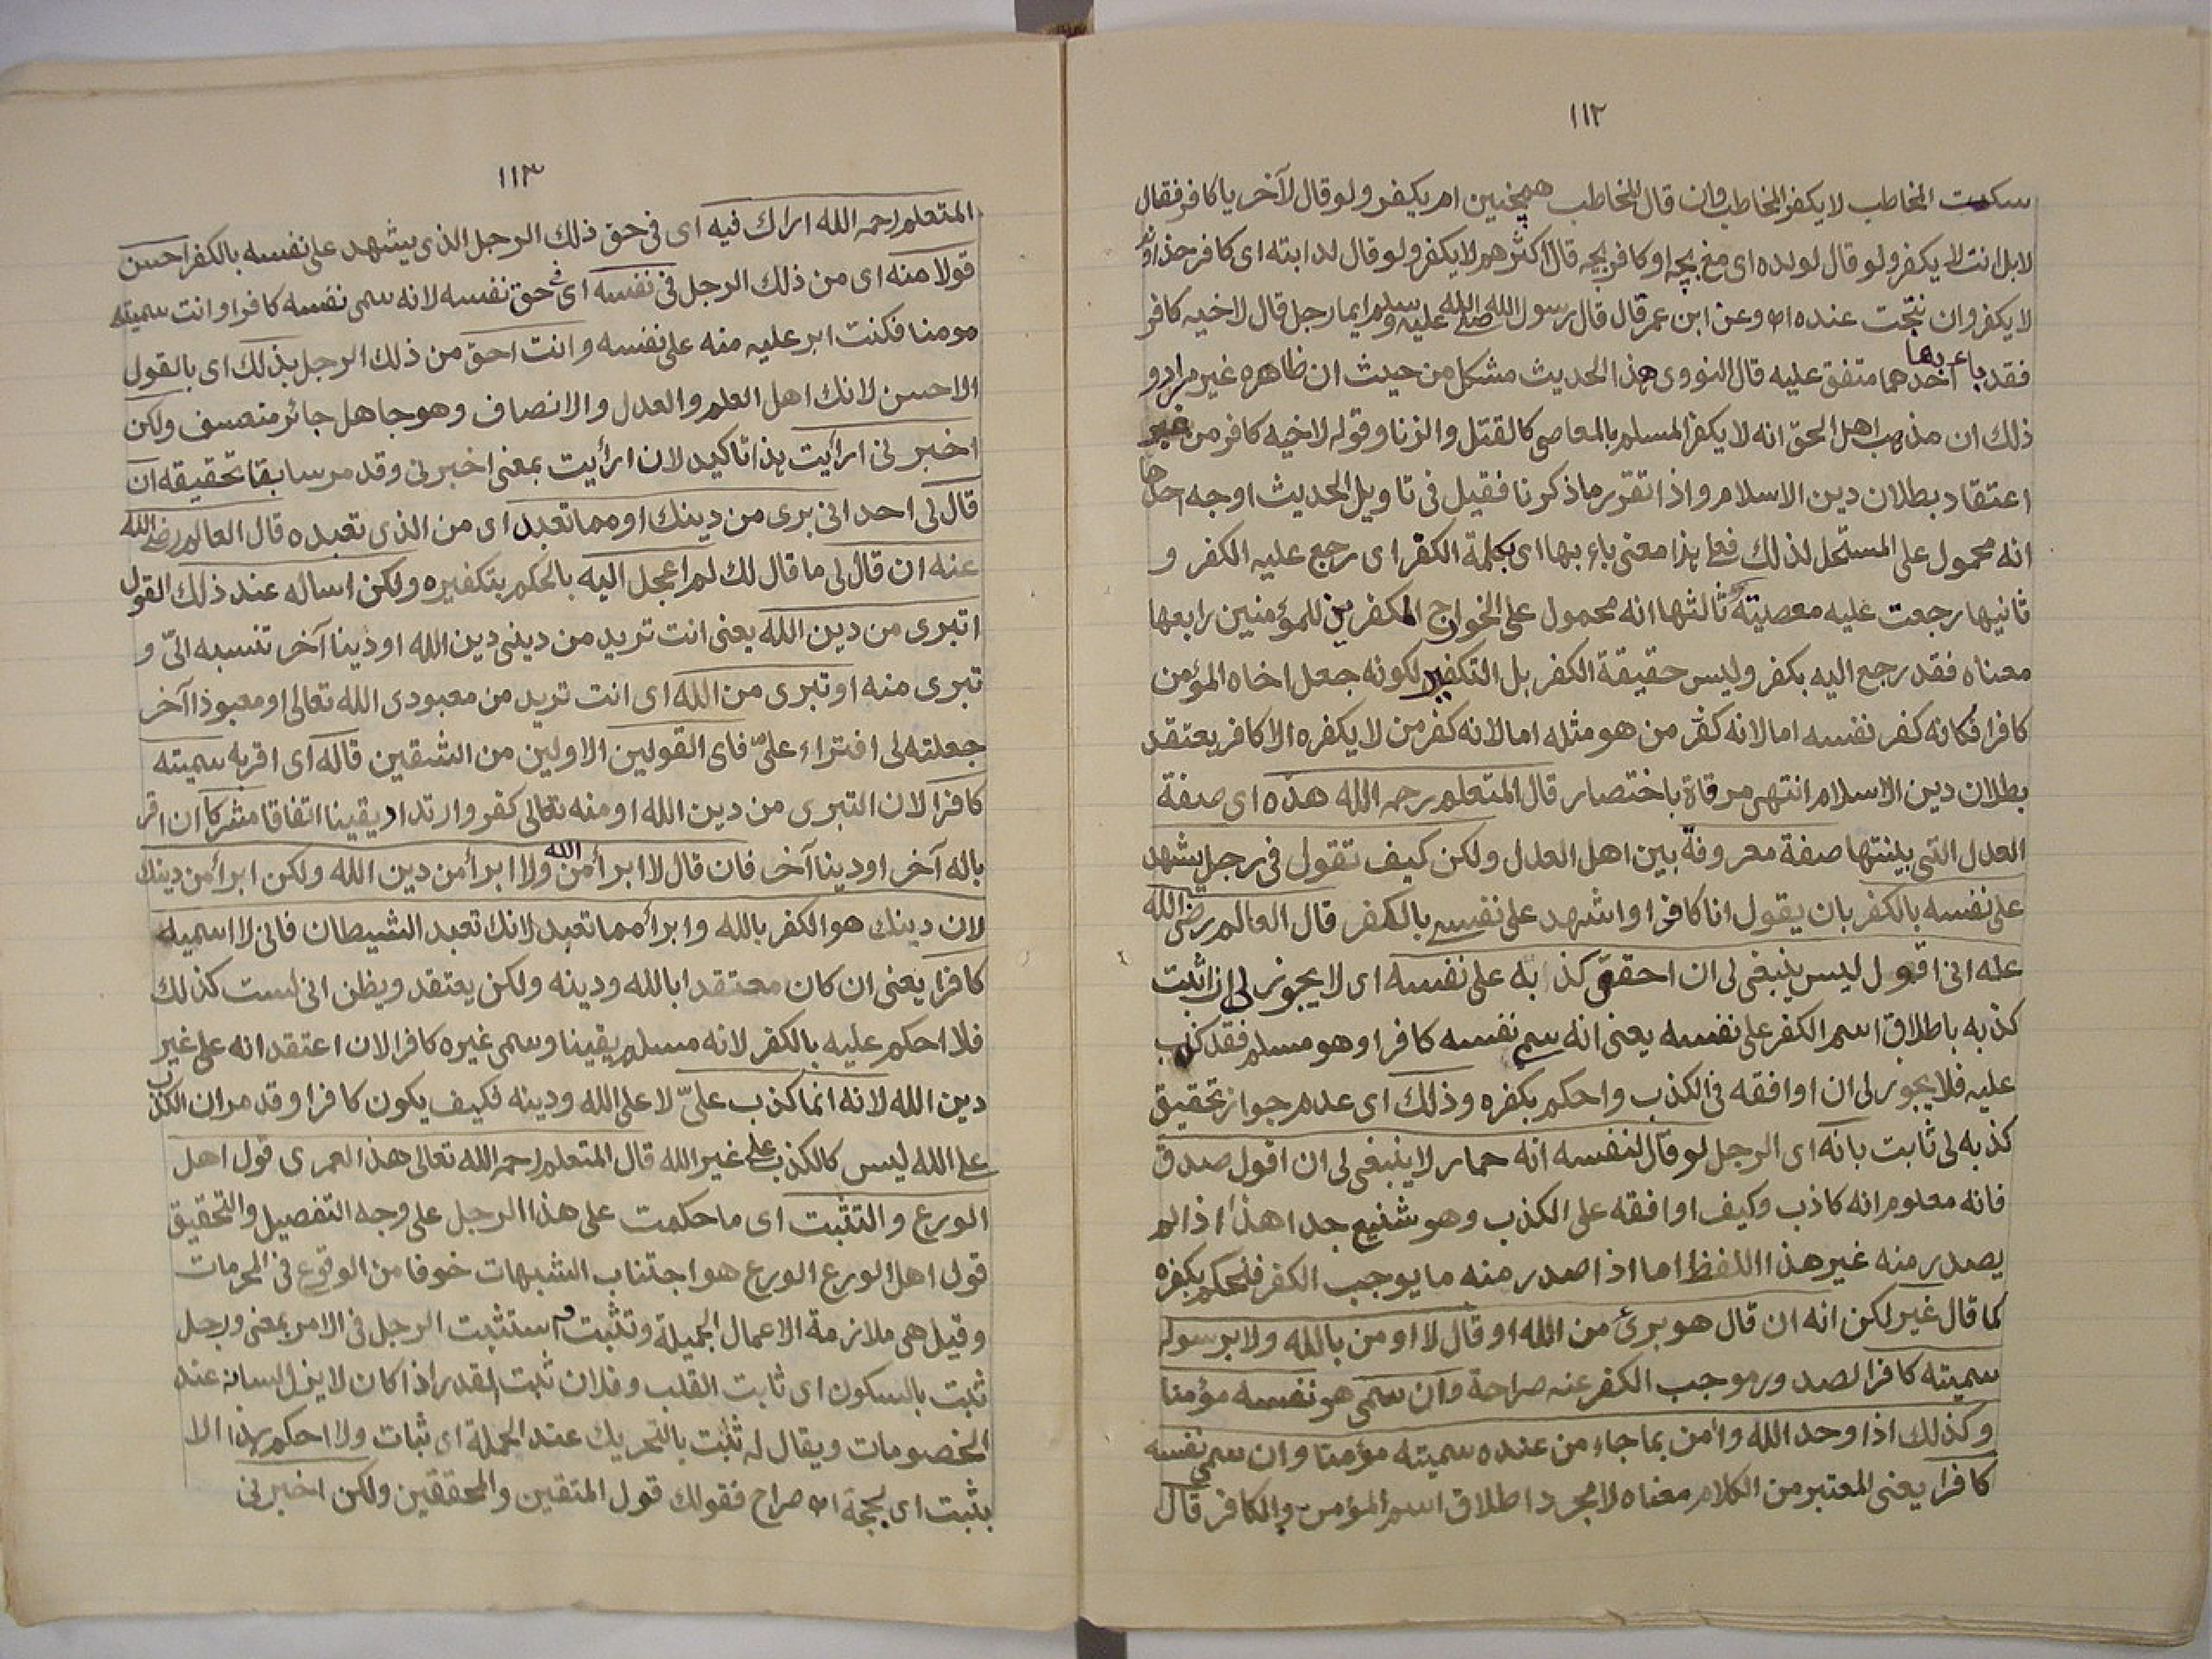 ١١٢
سكت المخاطب لا يكفر المخاطب وان قال المخاطب همچنين ام يكفر ولو قال لآخر يا كافر فقال
لا بل انت لا يكفر ولو قال لولده اى مغ بچه او كافر بچه قال اكثرهم لا يكفر ولو قال لدابته اى كافر خذاوند
لا يكفر وان نتجت عنده اه وعن ابن عمر قال قال رسول الله صلى الله عليه وسلم ايما رجل قال لاخيه كافر
فقد باء بها احدهما متفق عليه قال النووى هذا الحديث مشكل من حيث ان ظاهره غير مراد و
ذلك ان مذهب اهل الحق انه لا يكفر المسلم بالمعاصى كالقتل والزنا وقوله لاخيه كافر من غير
اعتقاد بطلان دين الاسلام واذا تقرر ما ذكرنا فقيل فى تاويل الحديث اوجه احدها
انه محمول على المستحل لذلك فعلى هذا معنى باء بها اى بكلمة الكفر اى رجع عليه الكفر و
ثانيها رجعت عليه معصيته ثالثها انه محمول على الخوارج المكفرين للمؤمنين رابعها
معناه فقد رجع اليه بكفر وليس حقيقة الكفر بل التكفير لكونه جعل اخاه المؤمن
كافرا فكانه كفر نفسه اما لانه كفر من هو مثله اما لانه كفر من لا يكفره الا كافر يعتقد
بطلان دين الاسلام انتهى مرقاة باختصار قال المتعلم رحمه الله هذه اى صفة
العدل التى بينتها صفة معروفة بين اهل العدل ولكن كيف تقول فى رجل يشهد
على نفسه بالكفر بان يقول انا كافر او اشهد على نفسى بالكفر قال العالم رضى الله
عنه انى اقول ليس ينبغى لى ان احقق كذبه على نفسه اى لا يجوز لى ان اثبت
كذبه باطلاق اسم الكفر على نفسه يعنى انه سمى نفسه كافرا وهو مسلم فقد كذب
عليه فلا يجوز لى ان اوافقه فى الكذب واحكم بكفره وذلك اى عدم جواز تحقيق
كذبه لى ثابت بانه اى الرجل لو قال لنفسه انه حمار لا ينبغى لى ان اقول صدق
فانه معلوم انه كاذب وكيف اوافقه على الكذب وهو شنيع جدا هذا اذا لم
يصدر منه غير هذا اللفظ اما اذا صدر منه ما يوجب الكفر فنحكم بكفره
كما قال غير لكن انه ان قال هو برئ من الله او قال لا اومن بالله ولا برسوله
سميته كافرا لصدور موجب الكفر عنه صراحة وان سمى هو نفسه مؤمنا
وكذلك اذا وحد الله وأمن بما جاء من عنده سميته مؤمنا وان سمى نفسه
كافرا يعنى المعتبر من الكلام معناه لا مجرد اطلاق اسم المؤمن والكافر قال
١١٣
المتعلم رحمه الله اراك فيه اى فى حق ذلك الرجل الذى يشهد على نفسه بالكفر احسن
قولا منه اى من ذلك الرجل فى نفسه اى فى حق نفسه لانه سمى نفسه كافرا وانت سميته
مومنا فكنت ابر عليه منه على نفسه وانت احق من ذلك الرجل بذلك اى بالقول
الاحسن لانك اهل العلم والعدل والانصاف وهو جاهل جائر متعسف ولكن
اخبرنى ارأيت هذا تاكيد لان ارأيت بمعنى اخبرنى وقد مر سابقا تحقيقه ان
قال لى احد انى برى من دينك او مما تعبد اى من الذى تعبده قال العالم رضى الله
عنه ان قال لى ما قال لك لم اعجل اليه بالحكم بتكفيره ولكن اساله عند ذلك القول
اتبرى من دين الله يعنى انت تريد من دينى دين الله او دينا آخر تنسبه الىّ و
تبرى منه او تبرى من الله اى انت تريد من معبودى الله تعالى او معبودا آخر
جعلته لى افتراء علىّ فاى القولين الاولين من الشقين قاله اى اقر به سميته
كافرا لان التبرى من دين الله او منه تعالى كفر وارتداد يقينا اتفاقا مشركا ان اقر
باله آخر او دينا آخر فان قال لا ابرأ من الله ولا ابرأ من دين الله ولكن ابرأ من دينك
لان دينك هو الكفر بالله وابرأ مما تعبد لانك تعبد الشيطان فانى لا اسميه
كافرا يعنى ان كان معتقدا بالله ودينه ولكن يعتقد ويظن انى لست كذلك
فلا احكم عليه بالكفر لانه مسلم يقينا وسمى غيره كافرا لان اعتقد انه على غير
دين الله لانه انما كذب علىّ لا على الله ودينه فكيف يكون كافرا وقد مر ان الكذب
على الله ليس كالكذب على غير الله قال المتعلم رحمه الله تعالى هذا لعمرى قول اهل
الورع والتثبت اى ما حكمت على هذا الرجل على وجه التفصيل والتحقيق
قول اهل الورع الورع هو اجتناب الشبهات خوفا من الوقوع فى المحرمات
وقيل هى ملازمة الاعمال الجميلة وتثبت واستثبت الرجل فى الامر بمعنى ورجل
ثبت بالسكون اى ثابت القلب وفلان ثبت الغدر اذا كان لا يزل لسانه عند
الخصومات ويقال له ثبت بالتحريك عند الحملة اى ثبات ولا احكم بهذا الا
بثبت اى بحجة اه صراح فقولك قول المتقين والمحققين ولكن اخبرنى